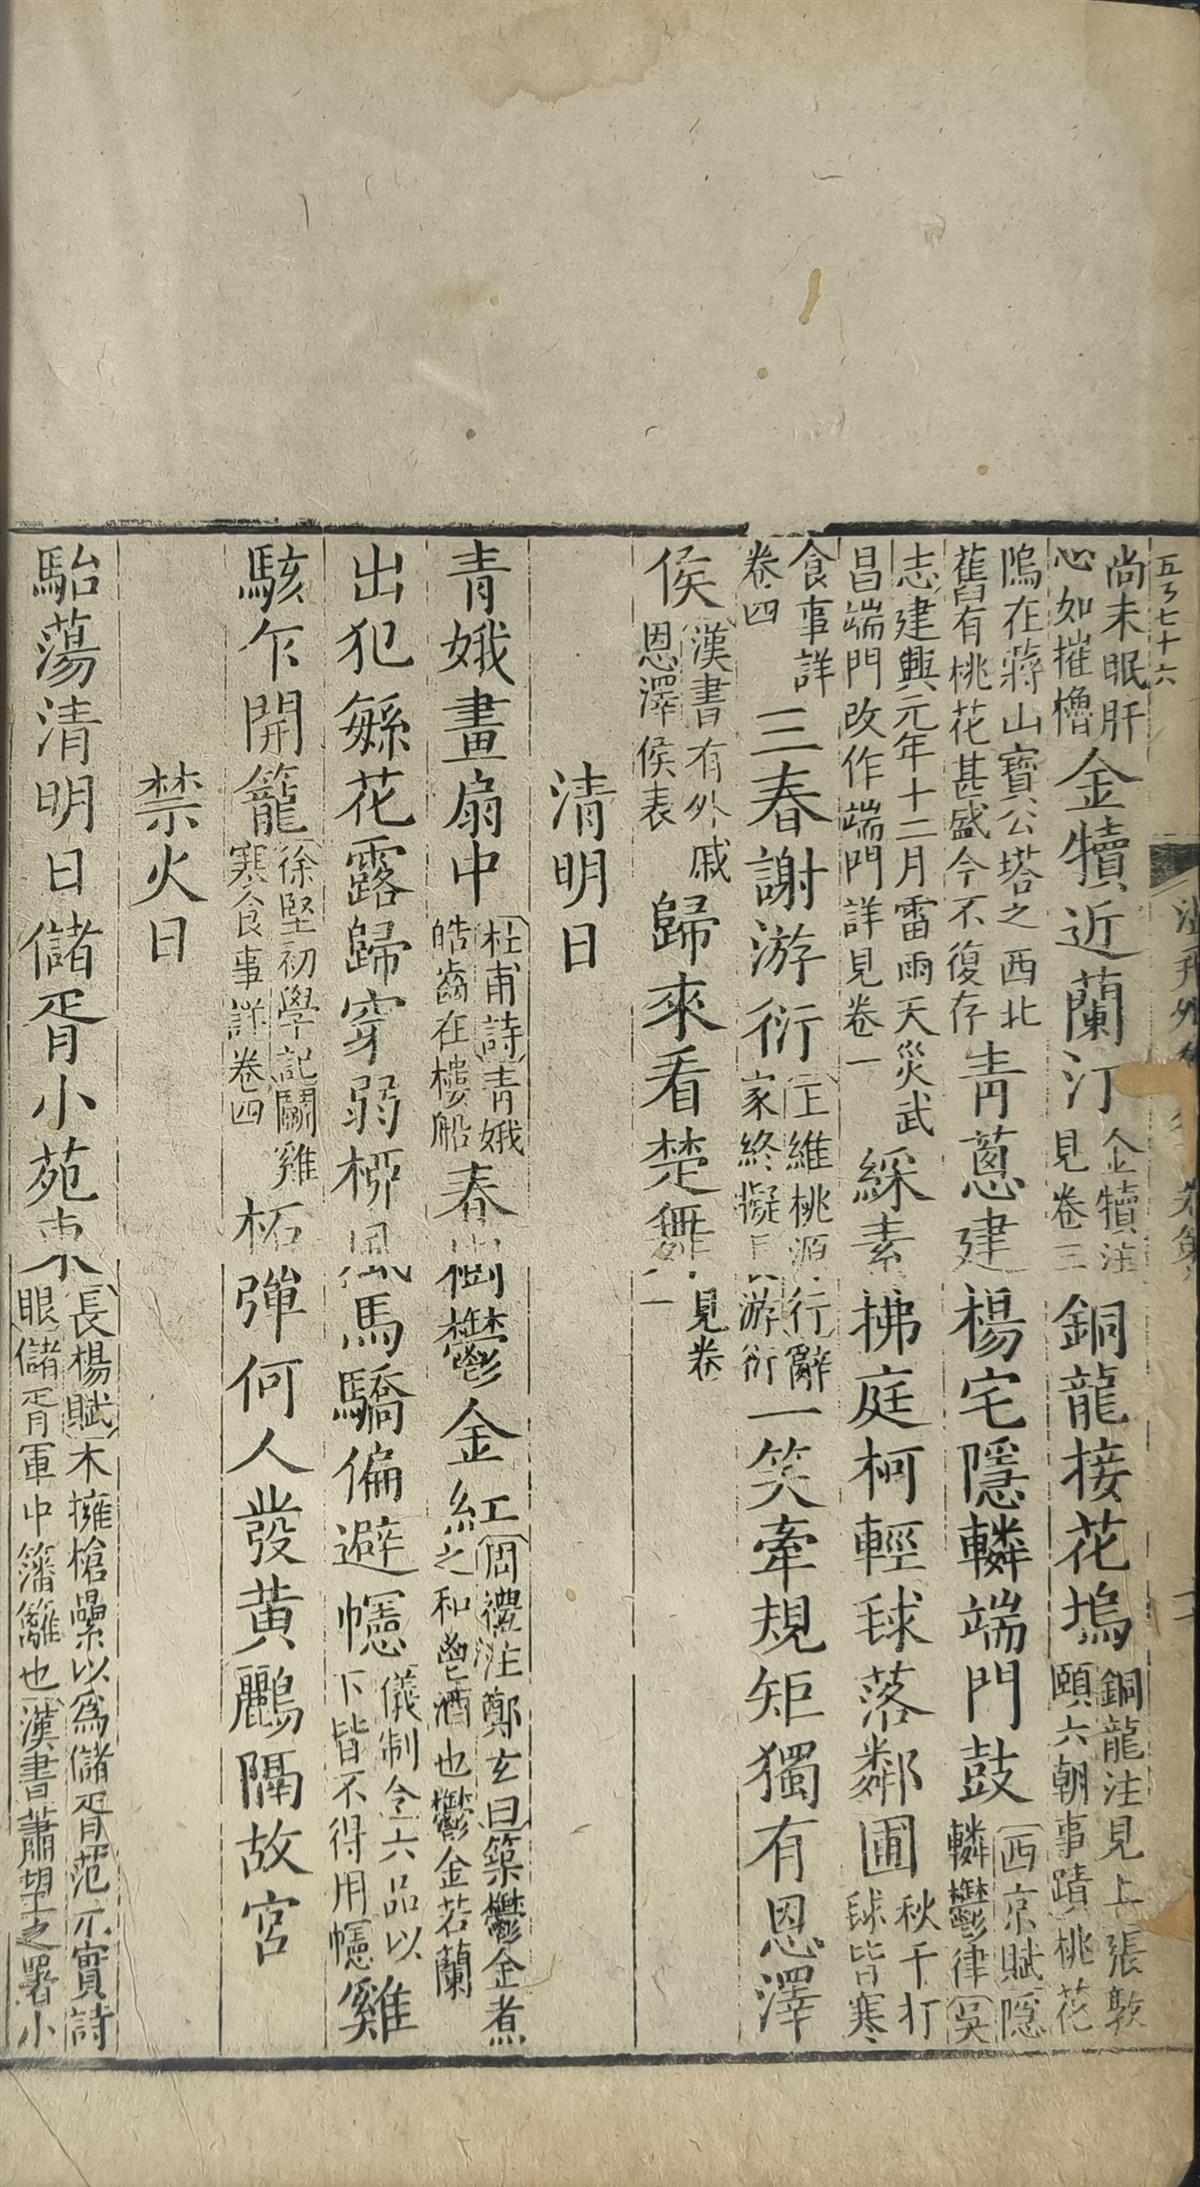 尚未眠肝心如摧櫓金犢近蘭汀金犢注見卷三銅龍接花塢銅龍注見上張敦頤六朝事蹟桃花
塢在蔣山寶公塔之西北舊有桃花甚盛今不復存青蔥建楊宅隱轔端門鼓西京賦隱轔鬱律吳
志建興元年十二月雷雨天災武昌端門改作端門詳見卷一綵素拂庭柯輕毬落鄰圃秋千打毬皆寒
食事詳卷四三春謝游衍王維桃源行辭家終擬長游衍一笑牽規矩獨有恩澤
侯漢書有外戚恩澤侯表歸來看楚舞見卷一
清明日
青娥畫扇中杜甫詩青娥皓齒在樓船春樹鬱金紅周禮注鄭玄曰築鬱金煮之和鬯酒也鬱金若蘭
出犯繁花露歸穿弱柳風馬驕偏避幰儀制令六品以下皆不得用幰雞
駭乍開籠徐堅初學記鬬雞寒食事詳卷四柘彈何人發黃鸝隔故宮
禁火日
駘蕩清明日儲胥小苑東長楊賦木擁槍纍以為儲胥范元實詩眼儲胥軍中籓籬也漢書蕭望之署小
五百七十六